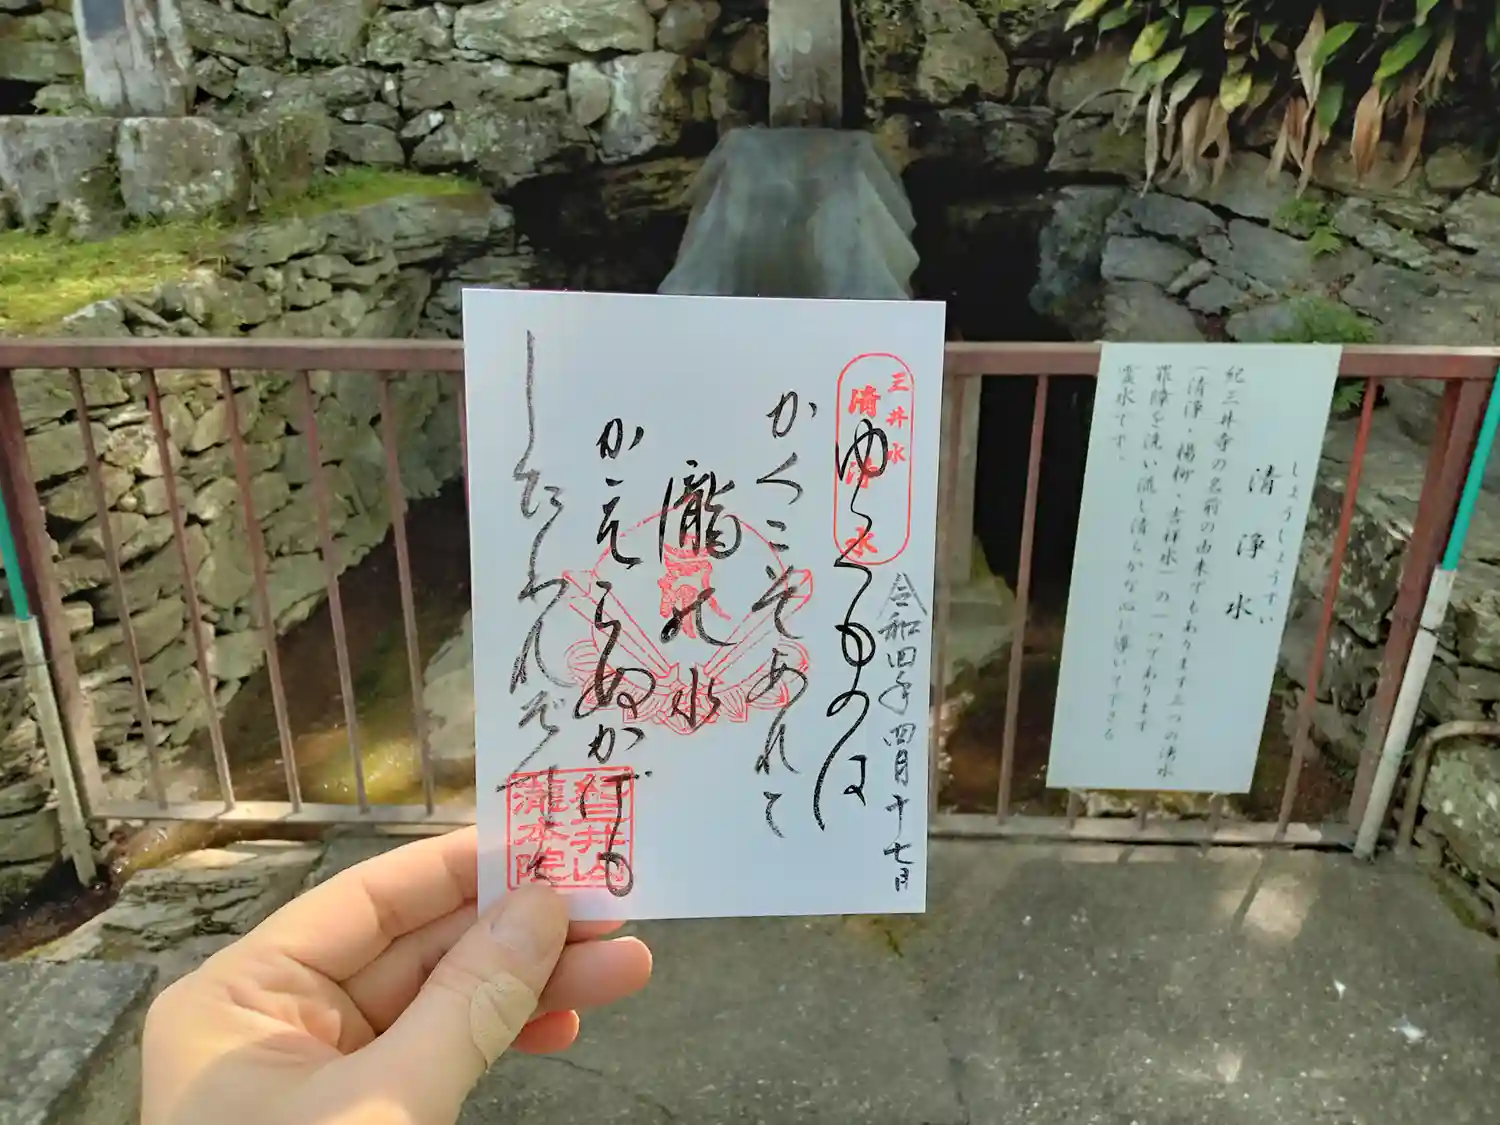 三井水
清浄水
令和四年四月十七日
ゆくものは
かくこそあれて
瀧の水
かえらぬかげも
したわれぞ
瀧本院
紀三井寺の名前の由来でもあります三つの湧水
(清浄・楊柳・吉祥水)の一つであります
罪障を洗い流し清らかな心に導いて下さる
霊水です。
しょうじょうすい
清浄水